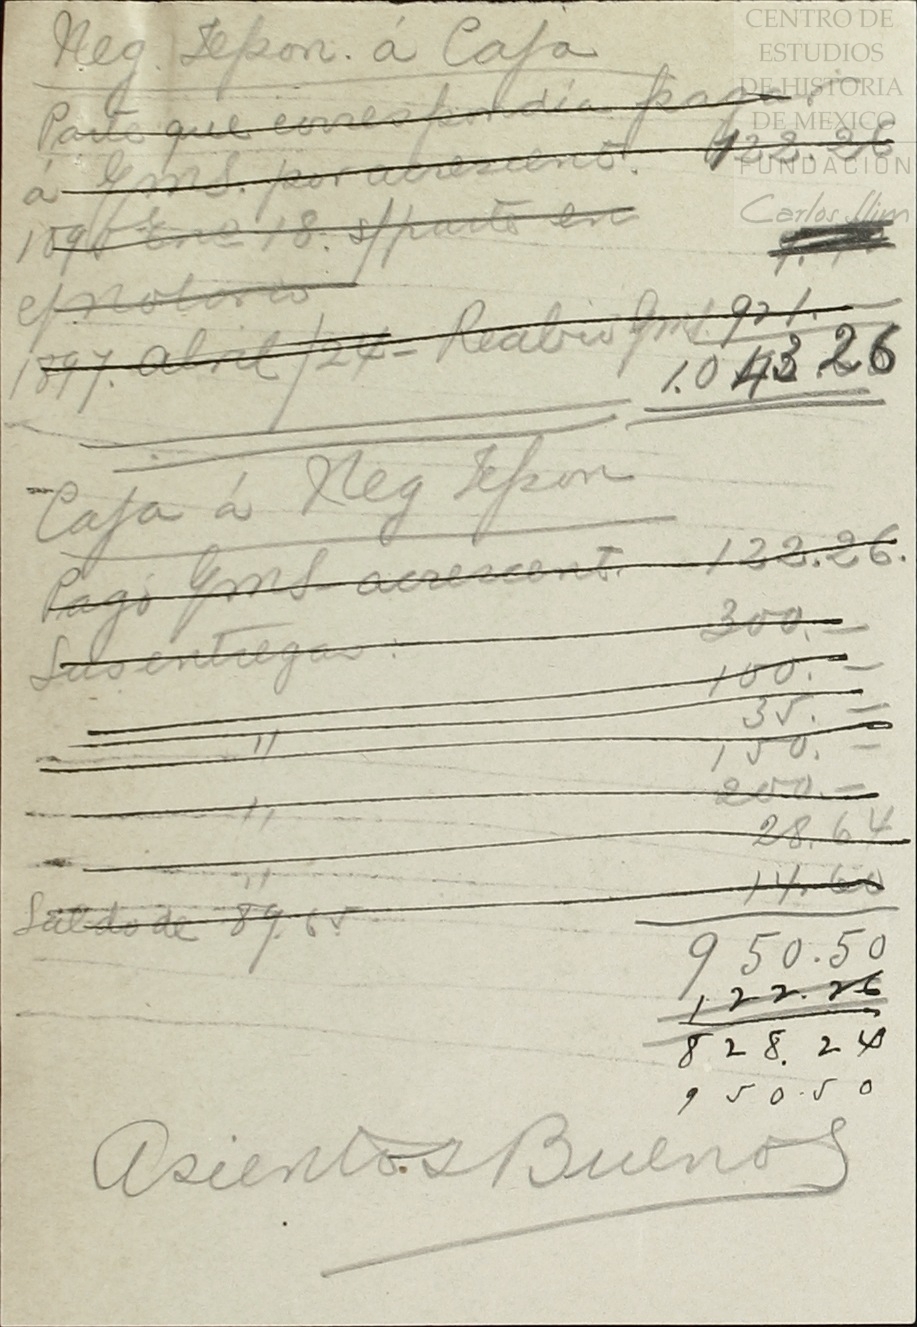 CENTRO DE
ESTUDIOS
DE HISTORIA
DE MEXICO
FUNDACIÓN
Carlos Slim
Neg. Tepon. á Caja
Parte que correspondia pagar
á GMS. por acrescent. 122.26
1896 Ene 18. s/parte en
c/ Notario
1897. Abril /24 - Recibió GMS. 921.-
1.043.26
Caja á Neg Tepon
Pagó GMS acrescent. 122.26.
Sus entregas: 300.-
100.-
35.-
" 150.-
200.-
" 28.64
" 14.60
Saldo de 89.65
950.50
122.26
828.24
950.50
Asientos Buenos